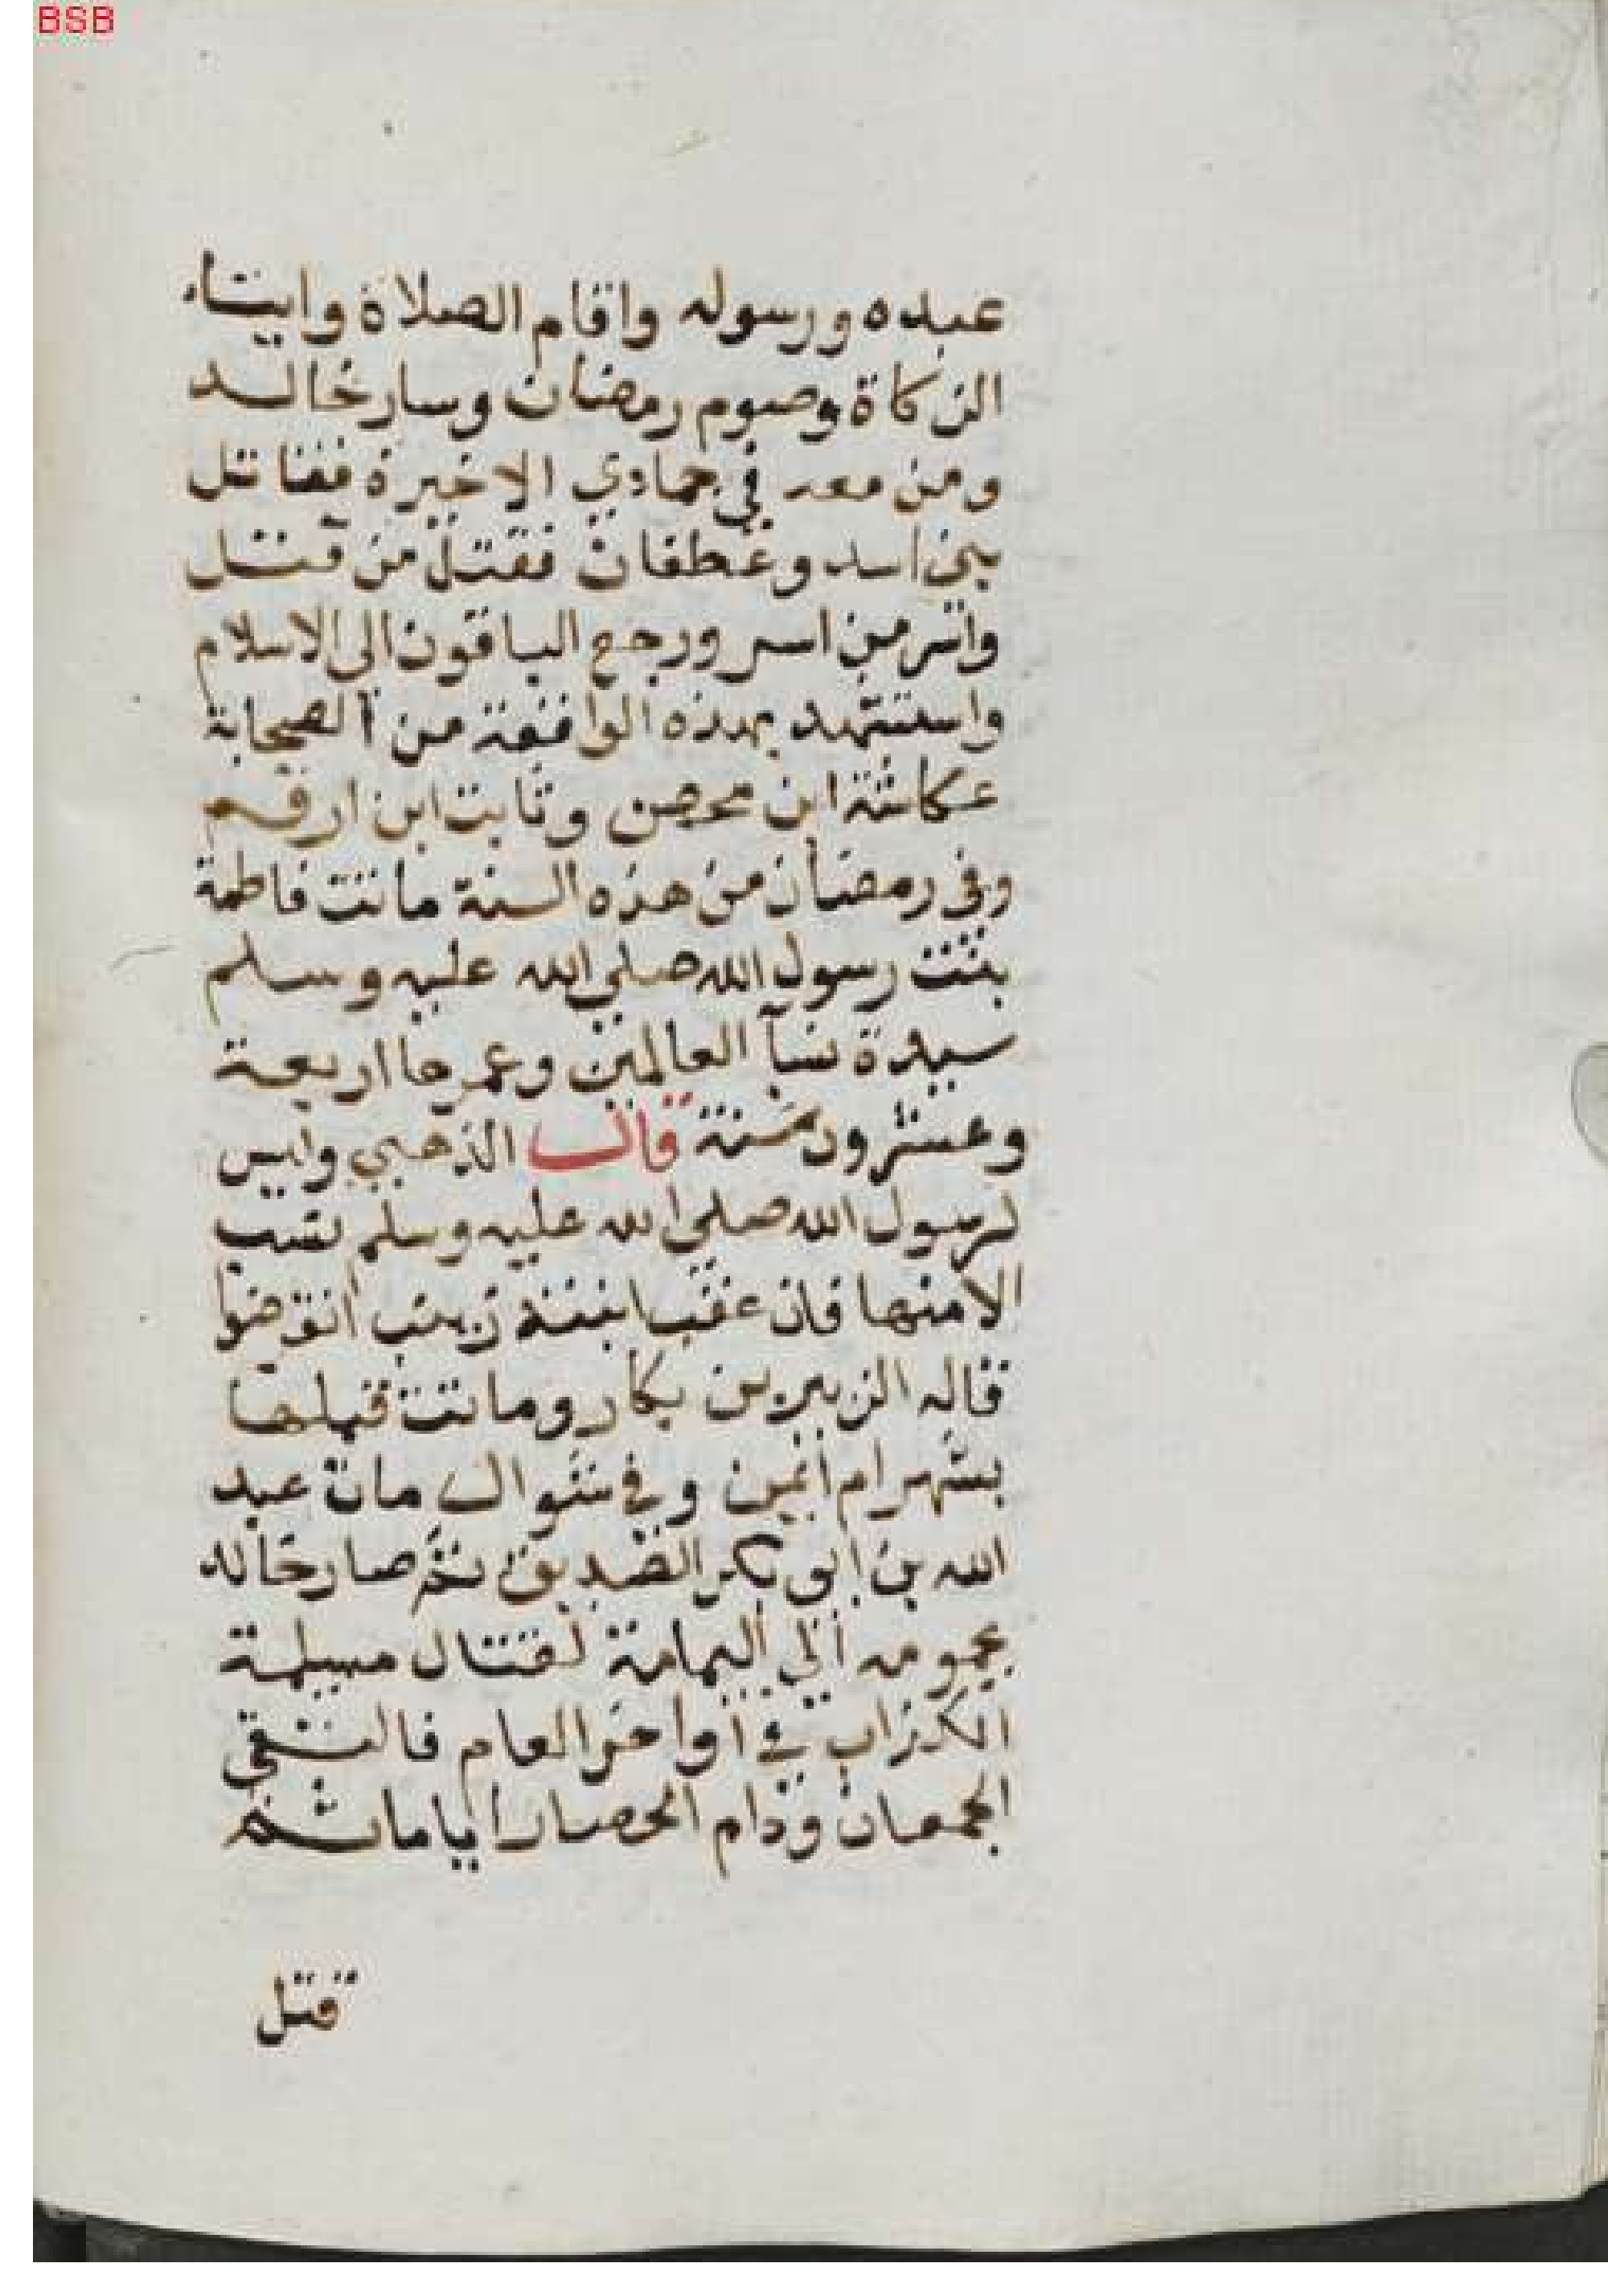 BSB
عبده ورسوله واقام الصلاة وايتاء
الزكاة وصوم رمضان وسار خالد
ومن معه في جمادي الاخيرة فقاتل
بني اسد وغطفان فقتل من قتل
واسر من اسر ورجع الباقون الى الاسلام
واستشهد بهذه الواقعة من الصحابة
عكاشة ابن محصن وثابت ابن ارقم
وفي رمضان من هذه السنة ماتت فاطمة
بنت رسول الله صلى الله عليه وسلم
سيدة نسآ العالمين وعمرها اربعة
وعشرون سنة قال الذهبي وليس
لرسول الله صلى الله عليه وسلم نسب
الا منها فان عقب ابنته زينب انقرضوا
قاله الزبير بن بكار وماتت قبلها
بشهر ام ايمن وفي شوال مات عبد
الله بن ابي بكر الصديق ثم صار خالد
بجموعه الي اليمامة لقتال مسيلمة
الكذاب في اواخر العام فالتقى
الجمعان ودام الحصار اياما ثم
قتل